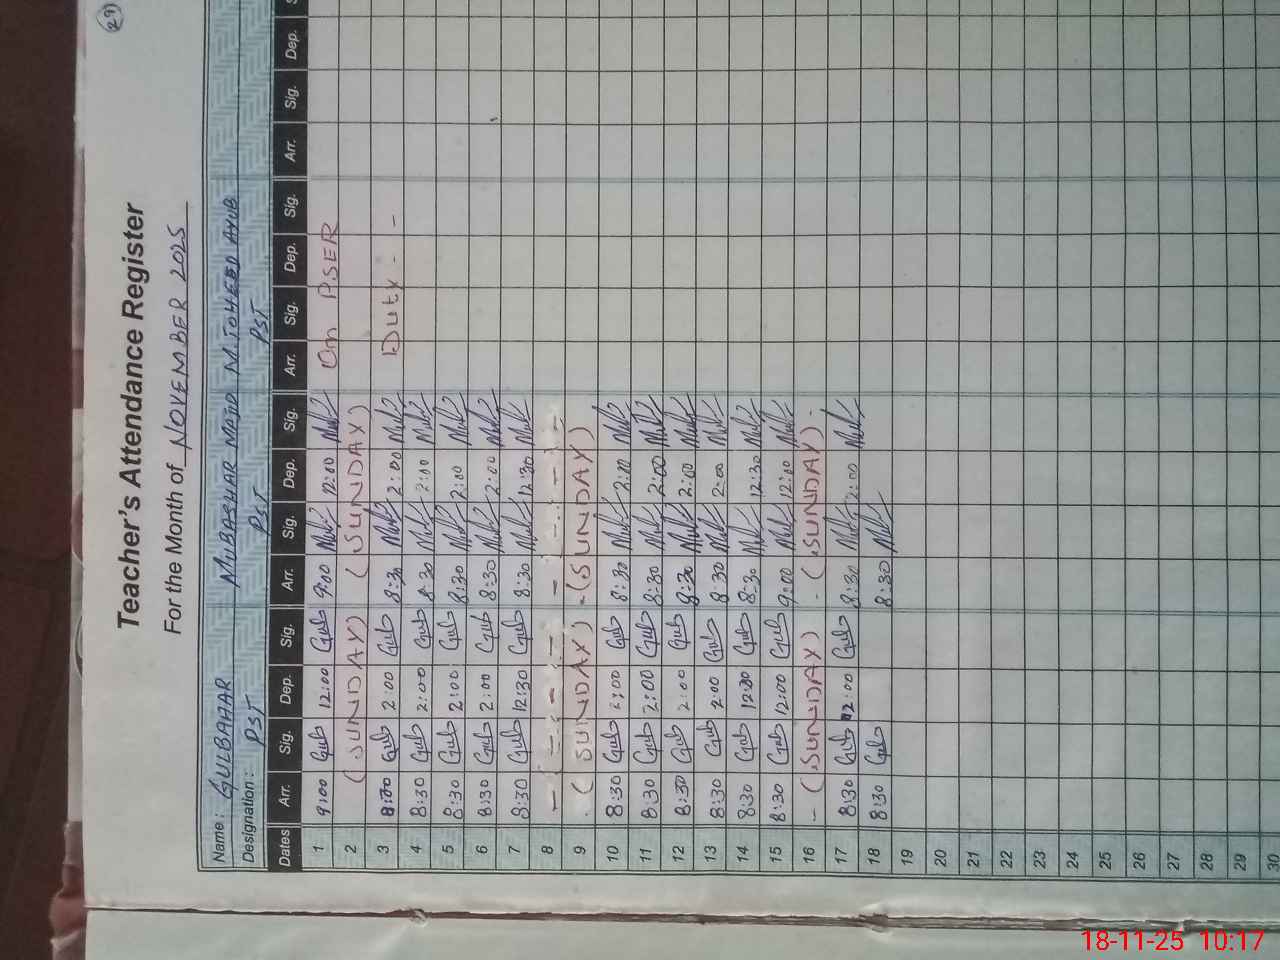 29
Teacher's Attendance Register
For the Month of NOVEMBER 2025
Name: GULBAHAR MUBASHAR MAJID M.TOHEED AYUB
Designation: PST PST PST
Dates Arr. Sig. Dep. Sig. Arr. Sig. Dep. Sig. Arr. Sig. Dep. Sig. Arr. Sig. Dep.
1 9:00 Gul 12:00 Gul 9:00 12:00 On PSER
2 (SUNDAY) (SUNDAY)
3 8:30 Gul 2:00 Gul 8:30 2:00 Duty - -
4 8:30 Gul 2:00 Gul 8:30 2:00
5 8:30 Gul 2:00 Gul 8:30 2:00
6 8:30 Gul 2:00 Gul 8:30 2:00
7 8:30 Gul 12:30 Gul 8:30 12:30
8
9 (SUNDAY) - (SUNDAY)
10 8:30 Gul 2:00 Gul 8:30 2:00
11 8:30 Gul 2:00 Gul 8:30 2:00
12 8:30 Gul 2:00 Gul 8:30 2:00
13 8:30 Gul 2:00 Gul 8:30 2:00
14 8:30 Gul 12:30 Gul 8:30 12:30
15 8:30 Gul 12:00 Gul 9:00 12:00
16 - (SUNDAY) - (SUNDAY) -
17 8:30 Gul 2:00 Gul 8:30 2:00
18 8:30 Gul 8:30
19
20
21
22
23
24
25
26
27
28
29
30
18-11-25 10:17